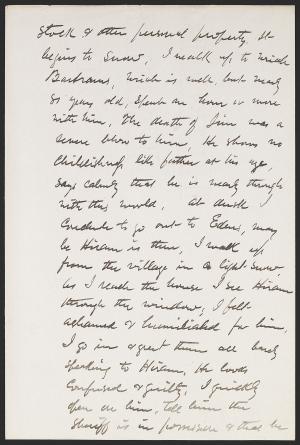 stock & other personal property. It
begins to snow, I walk up to Uncle
Bartrams, Uncle is well, but nearly
81 years old, spent an hour or more
with him, The death of Jim was a
severe blow to him, He shows no
childishness, like father at his age,
says calmly that he is nearly through
with this world. At dusk I
conclude to go out to Edens, may
be Hiram is there, I walk up
from the village in a light snow.
As I reach the house I see Hiram
through the window, I felt
ashamed & humiliated for him.
I go in & greet them all barely
speaking to Hiram, He looks
confused & guilty, I quickly
open on him, tell him the
Sheriff is in possession & that he